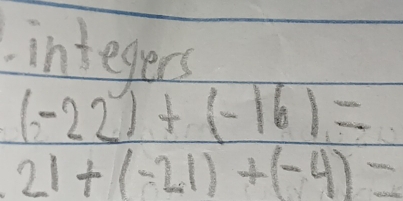 integers
(-22) + (-16) =
21 + (-21) + (-4) =